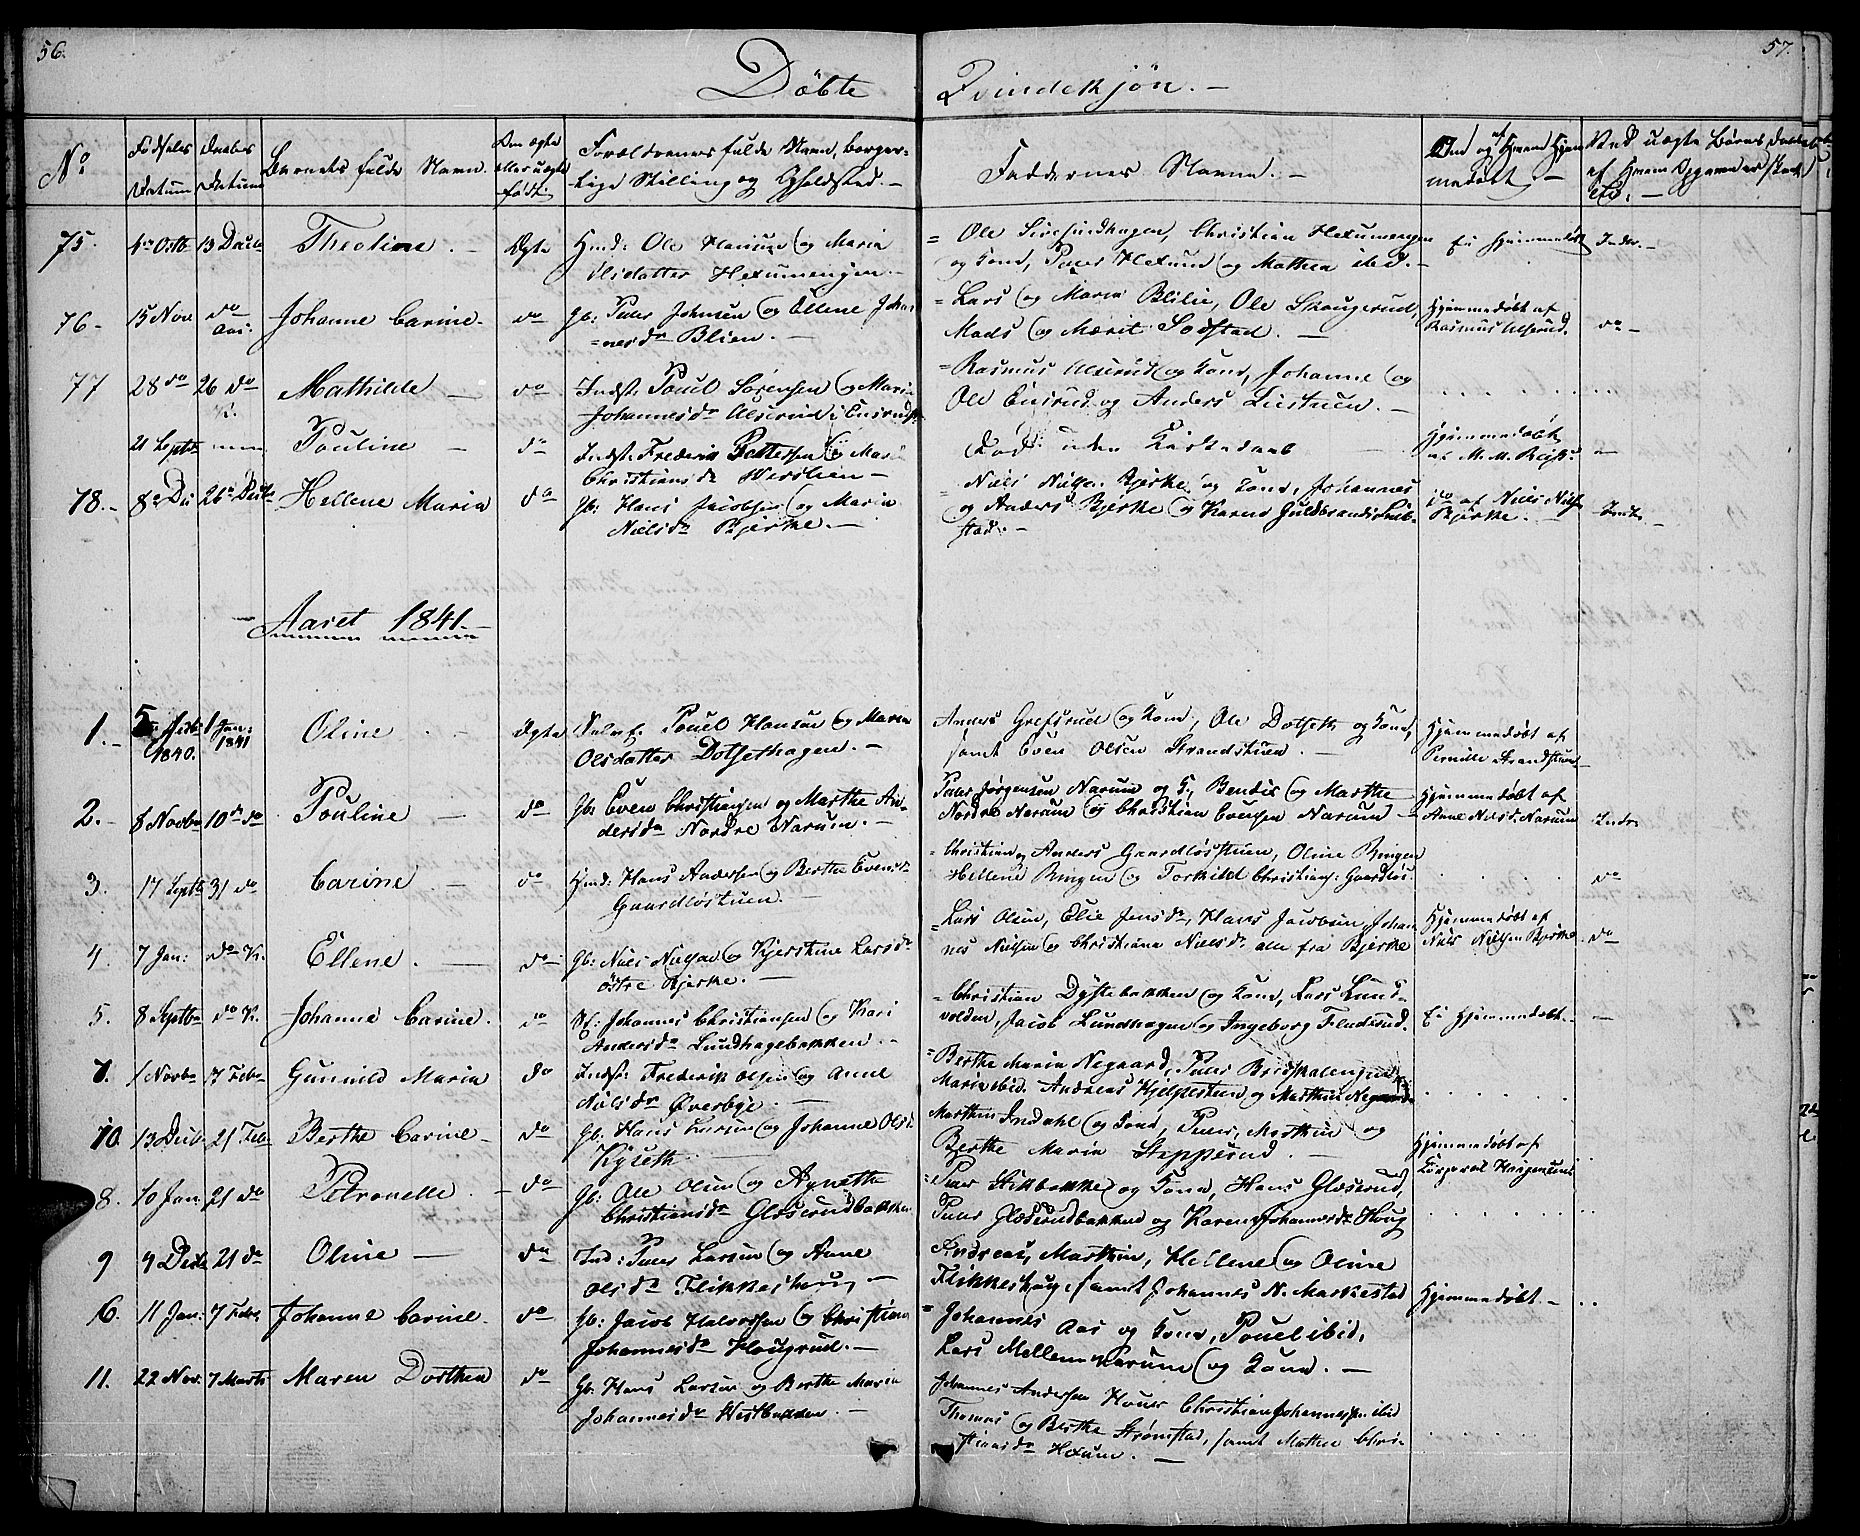 56.
57.
Döbte Qvindekjön. —
No
Födsels Datum
Daabs Datum
Barnets fulde Navn.
Om ægte eller uægte födt.
Forældrenes fulde Navn, borger-
lige Stilling og Opholdsted. —
Faddernes Navne. —
Om og af hvem Hjem
medöbt —
75. 4de Octb 13 Decb Theoline. — Ægte Hmd: Ole Hansen og Maria
Olsdatter Hexumengen. —
og Kone, Peder Hexum og Mathea ibid. —
Ei hjemmedöbt Indr. —
76 - 15 Nov do Aas: Johanne Carine - do Gb: Peder Johnsen og Ellene Johan
=nesdr Blien. —
= Lars og Maria Blilie, Ole Skougerud,
Mads og Marit Sodstad. —
Hjemmedöbt af
Rasmus Alsrud. do —
77 28 do 26 do K. Mathilde — do Indst: Pouel Sörensen og Maria
Johannesdr Alsrud i Eensrudst
= Rasmus Alsrud og Kone, Johanne og
Ole Eensrud og Anders Liestuen. —
21 Septb Pouline — do Indst: Frederik Pettersen og Mari
Christiansdr Werslien —
Död uden Kirkedaab —
Hjemmedöbt
af M. M.
78. - 8de Do 26de Decb Hellene Maria do Gb: Hans Jacobsen og Maria
Nielsdr Bjerke. —
= Niels Nielsen Bjerke og Kone, Johannes
og Anders Bjerke og Karen Guldbrandsd
stad. —
do af Niels Niels
Bjerke. —
Aaret 1841. —
1. - 5 Decb 1840. 1 Jan: 1841 Oline . . Ægte Pouel Hansen og Maria
Olsdatter Dotsethhagen. —
Anders Grefsrud og Kone, Ole Dotseth og Kone,
samt Even Olsen Strandstuen. —
Hjemmedöbt af
Pernille Strandstuen
2. - 8 Novbr 10de do Pouline — do Gb: Even Christiansen og Marthe An-
dersdr Nordre Narum. —
Peder Jörgensen Narum og K, Bendix og Marthe
Nordre Narum og Christian Evensen Narum —
Hjemmedöbt af
Anne Nielsd: Narum Indr.
3. 17 Septb 31 do Carine . — do Hmd: Hans Andersen og Berthe Evensdr
Gaardlösstuen. —
= Christian og Anders Gaardlösstuen, Oline Bingen
Hellene Bingen og Torkild Christians: Gaardlös. do
4. 7 Jan: do K. Ellene . — do Gb: Niels Nielsen og Kjerstine Larsdr
östre Bjerke. —
= Lars Olsen, Elie Jensdr, Hans Jacobsen, Johan
nes Nielsen og Christiane Nielsdr alle fra Bjerke
Hjemmedöbt af
Niels Nielsen Bjerke do
5. 8 Septbr do K. Johanne Carine. do Johannes Christiansen og Kari
Andersdr Lundhagebakken. —
= Christian Dystebakken og Kone, Lars Lund-
volden, Jacob Lundhagen og Ingeborg Fladsrud.
Ei Hjemmedöbt. —
7. 1 Novb 7 Feb Gunnild Maria do Indst: Frederik Olsen og Anne
Nielsdr Överbye. —
= Berthe Maria Negaard, Peder
Maria ibid. Andreas Hjelpestuen og Marthin Negaard
10. 13 Decb 21 Feb Berthe Carine - do Gb. Hans Larsen og Johanne Olsd
Kyseth —
Marthin Indahl og Kone, Peder, Marthin og
Berthe Maria Skipperud. —
Hjemmedöbt af
8. 10 Jan. 21 do Petronelle . — do Gb: Ole Olsen og Agnethe
Christiansdr Glæserudbakken
= Peder Stikbakke og Kone, Hans Glæserud,
Peder Glæserudbakken og Karen Johannesdr Houg
9 4 Decb 21 do Oline — do Ind: Peder Larsen og Anne
Olsdr Flikkeshoug —
Andreas, Marthin, Hellene og Oline
Flikkeshoug, samt Johannes N. Markestad
6. 11 Jan: 7 Feb. Johanne Carine. do Gb: Jacob Halvorsen og Christiane
Johannesdr Hougrud. —
= Johannes Aas og Kone, Pouel ibid,
Lars Mellem Narum og Kone. —
Hjemmedöbt —
11. 22 Nov. 7 Marts Maren Dorthea do Gb. Hans Larsen og Berthe Maria
Johannesdr Westbakken. —
Johannes Andersen Houer Christian Johannessen ibid
Thomas og Berthe Strömstad, samt Mathea Chri-
stiansdr Hexum. —